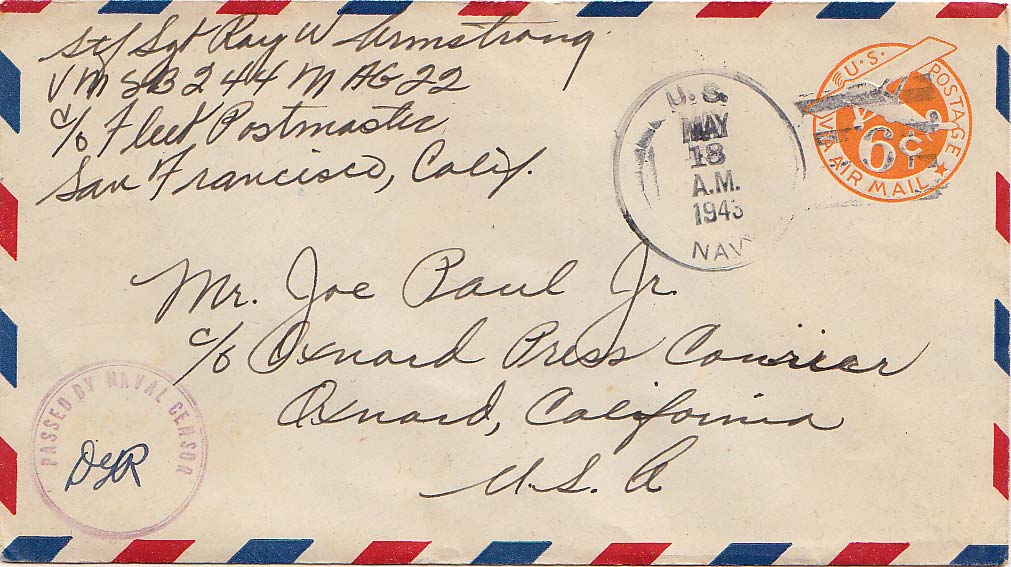 Stf Sgt Ray W Armstrong
VMSB 244 MAG 22
c/o Fleet Postmaster
San Francisco, Calif.
U.S.
MAY
18
A.M.
1943
NAVY
U.S. POSTAGE
6¢
VIA AIR MAIL
Mr. Joe Paul Jr.
c/o Oxnard Press Courriar
Oxnard, California
U.S.A
PASSED BY NAVAL CENSOR